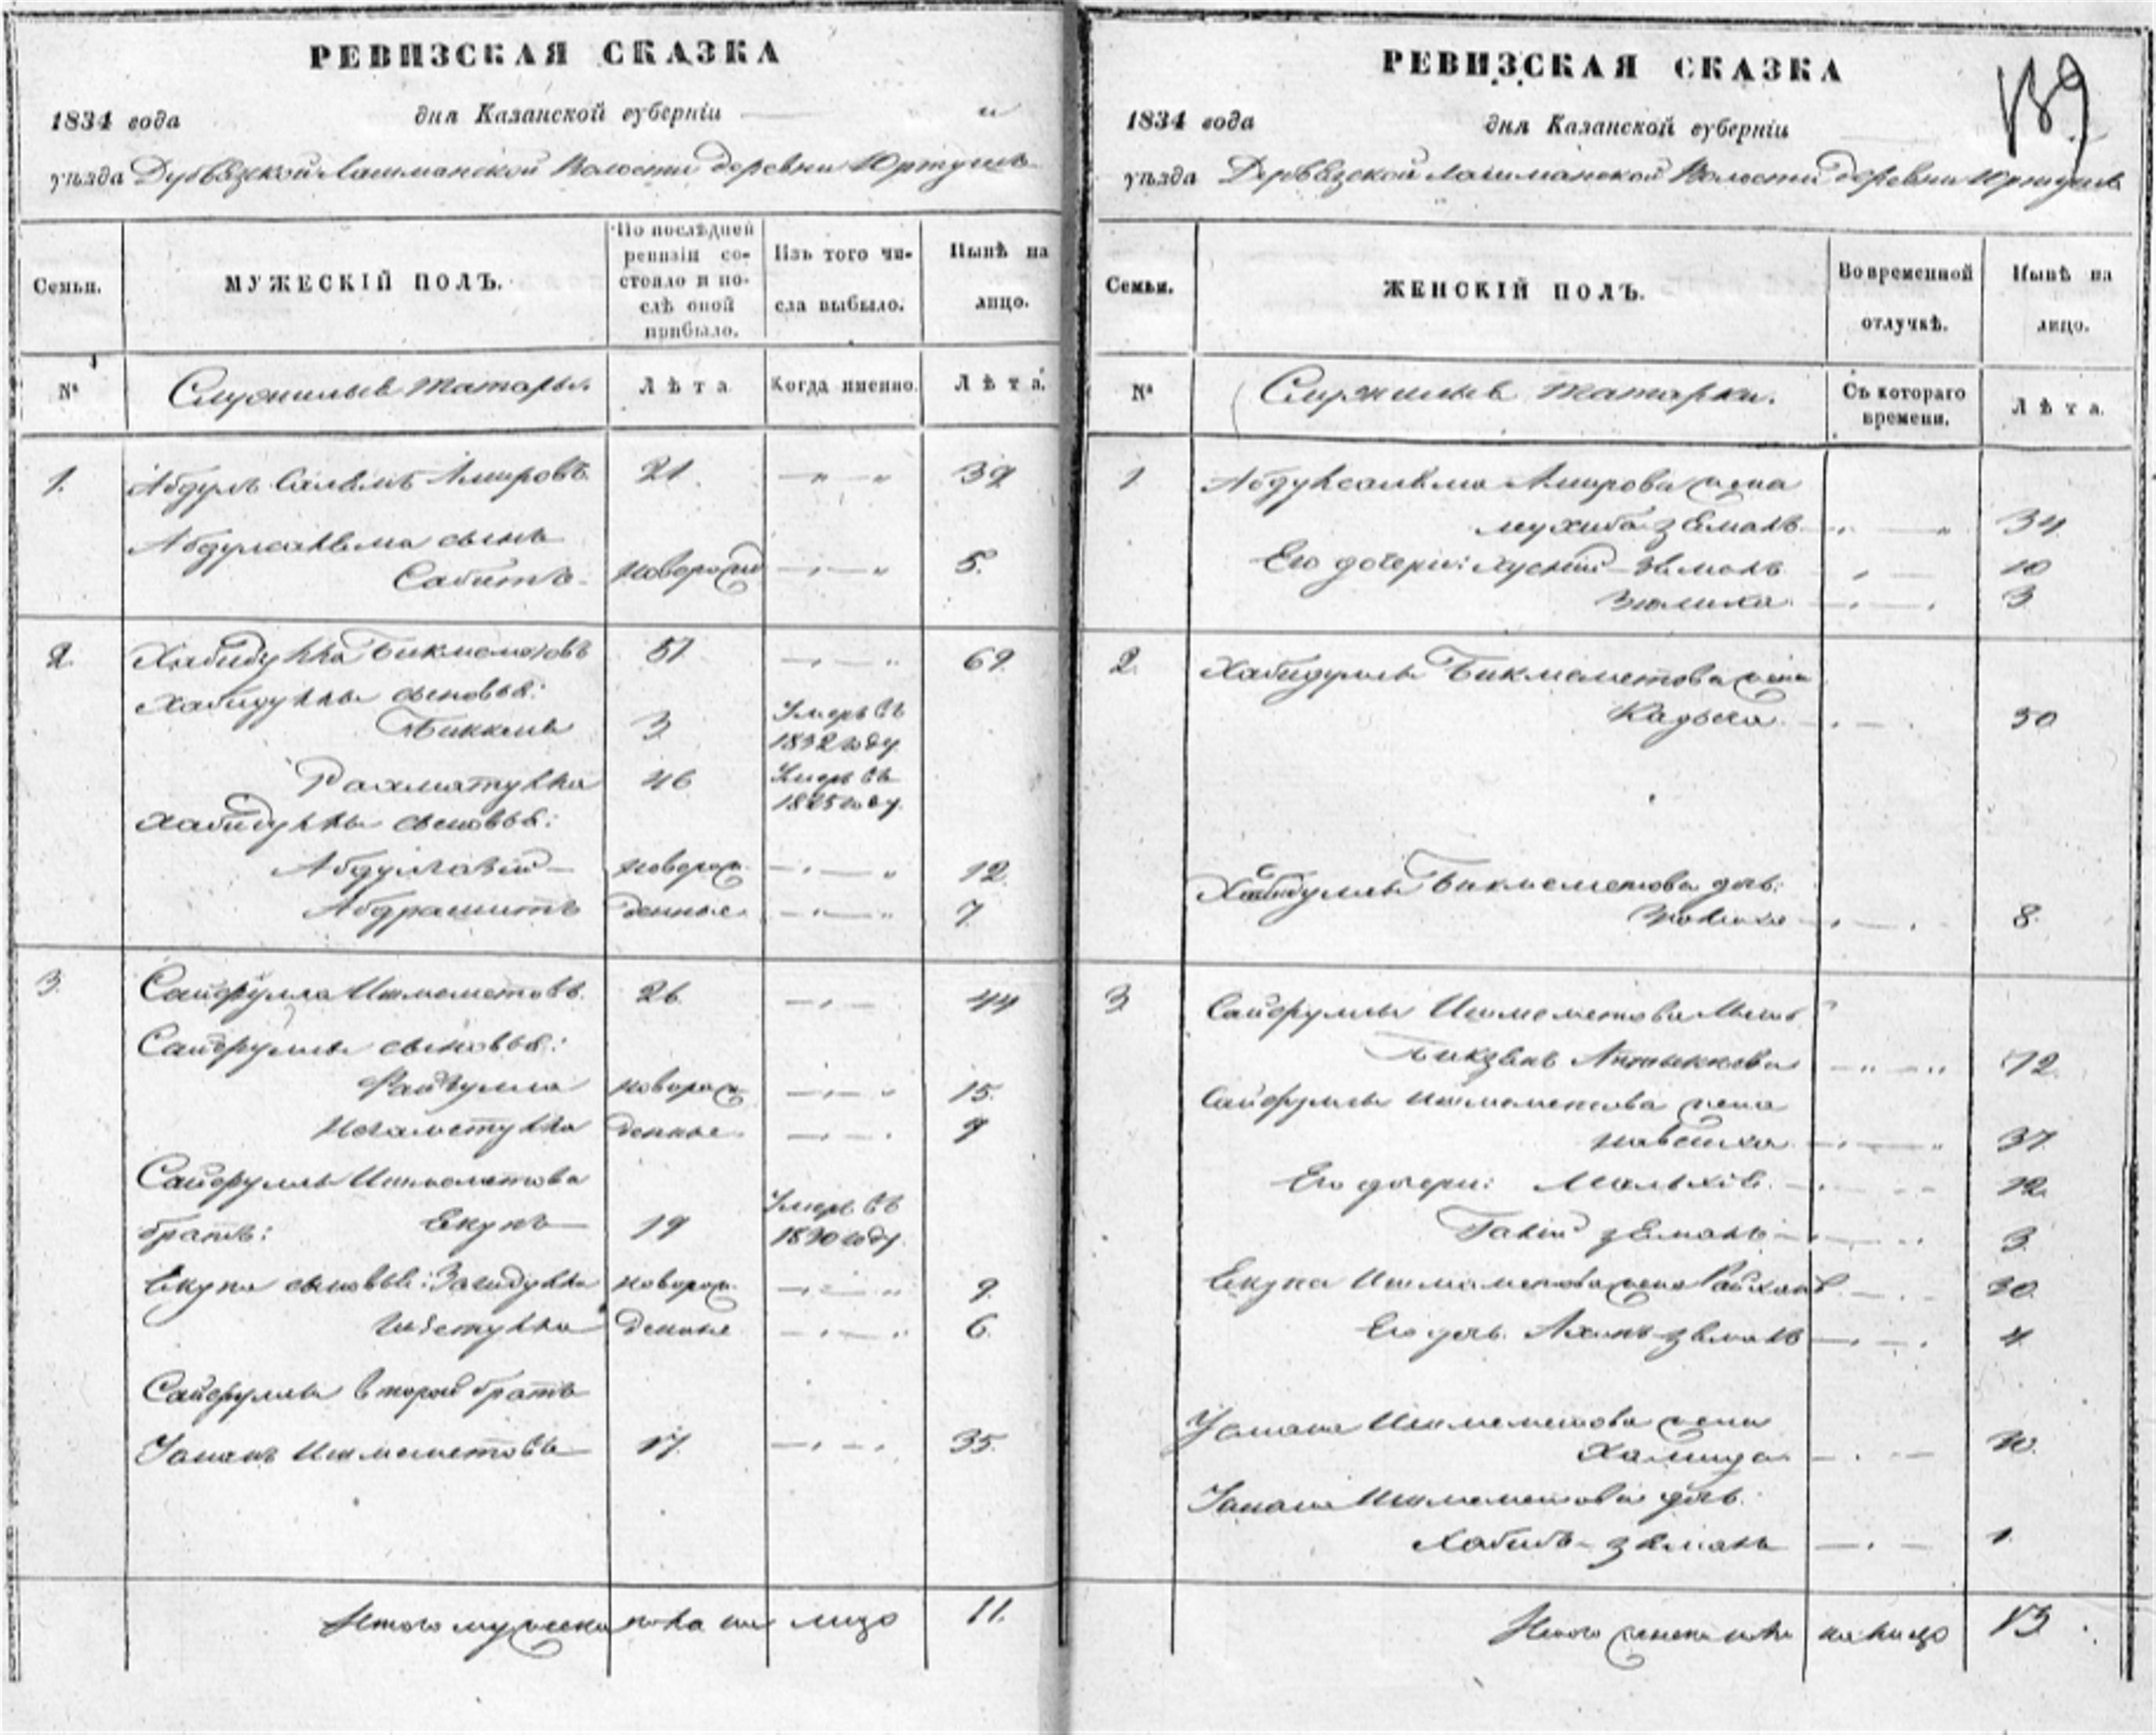 РЕВИЗСКАЯ СКАЗКА
1834 года дня Казанской губерніи
уѣзда Лашманской Волости деревни Юртушъ
Семьи.
МУЖЕСКІЙ ПОЛЪ.
По послѣдней ревизіи состояло и послѣ оной прибыло.
Изъ того числа выбыло.
Нынѣ на лицо.
№
Служилыя татары.
Лѣта
Когда именно.
Лѣта.
1. Абдулъ Салямъ Амировъ 21. 39
Абдулсаляма сынъ
Сабитъ новорожд 5.
2. Хабибулла Бикмеметовъ 51 69
Хабибуллы сыновья:
Биккень 3 Умеръ въ 1832 году
Рахматулла 46 Умеръ въ 1825 году.
Хабибуллы сыновья:
новорож 12.
Абдрашитъ денные 7
3. Сайфулла Ишмеметовъ 26 44
Сайфуллы сыновья:
новорож 15.
денные 9
Сайфуллы Ишмеметова
братъ: Екупъ 19 Умеръ въ 1830 году.
Екупа сыновья: новорож 9.
денные 6.
Сайфуллы второй братъ
Усманъ Ишмеметовъ 17. 35.
Итого мужеска пола на лицо 11.
РЕВИЗСКАЯ СКАЗКА
139
1834 года дня Казанской губерніи
уѣзда Лашманской Волости деревни Юртушъ
Семьи.
ЖЕНСКІЙ ПОЛЪ.
Во временной отлучкѣ.
Нынѣ на лицо.
№
Служилыя татарки.
Съ котораго времени.
Лѣта.
1 Абдулсаляма Амирова жена
34
Его дочери: 10
Зюлиха 3
2. Хабибуллы Бикмеметова жена
50
Хабибуллы Бикмеметова дочь:
8.
3 Сайфуллы Ишмеметова мать
72.
Сайфуллы Ишмеметова жена
37.
Его дочери: 12.
3.
Екупа Ишмеметова жена 30.
Его дочь 4.
Усмана Ишмеметова жена
Хамида 20.
Усмана Ишмеметова дочь.
1.
Итого женска пола на лицо 13.